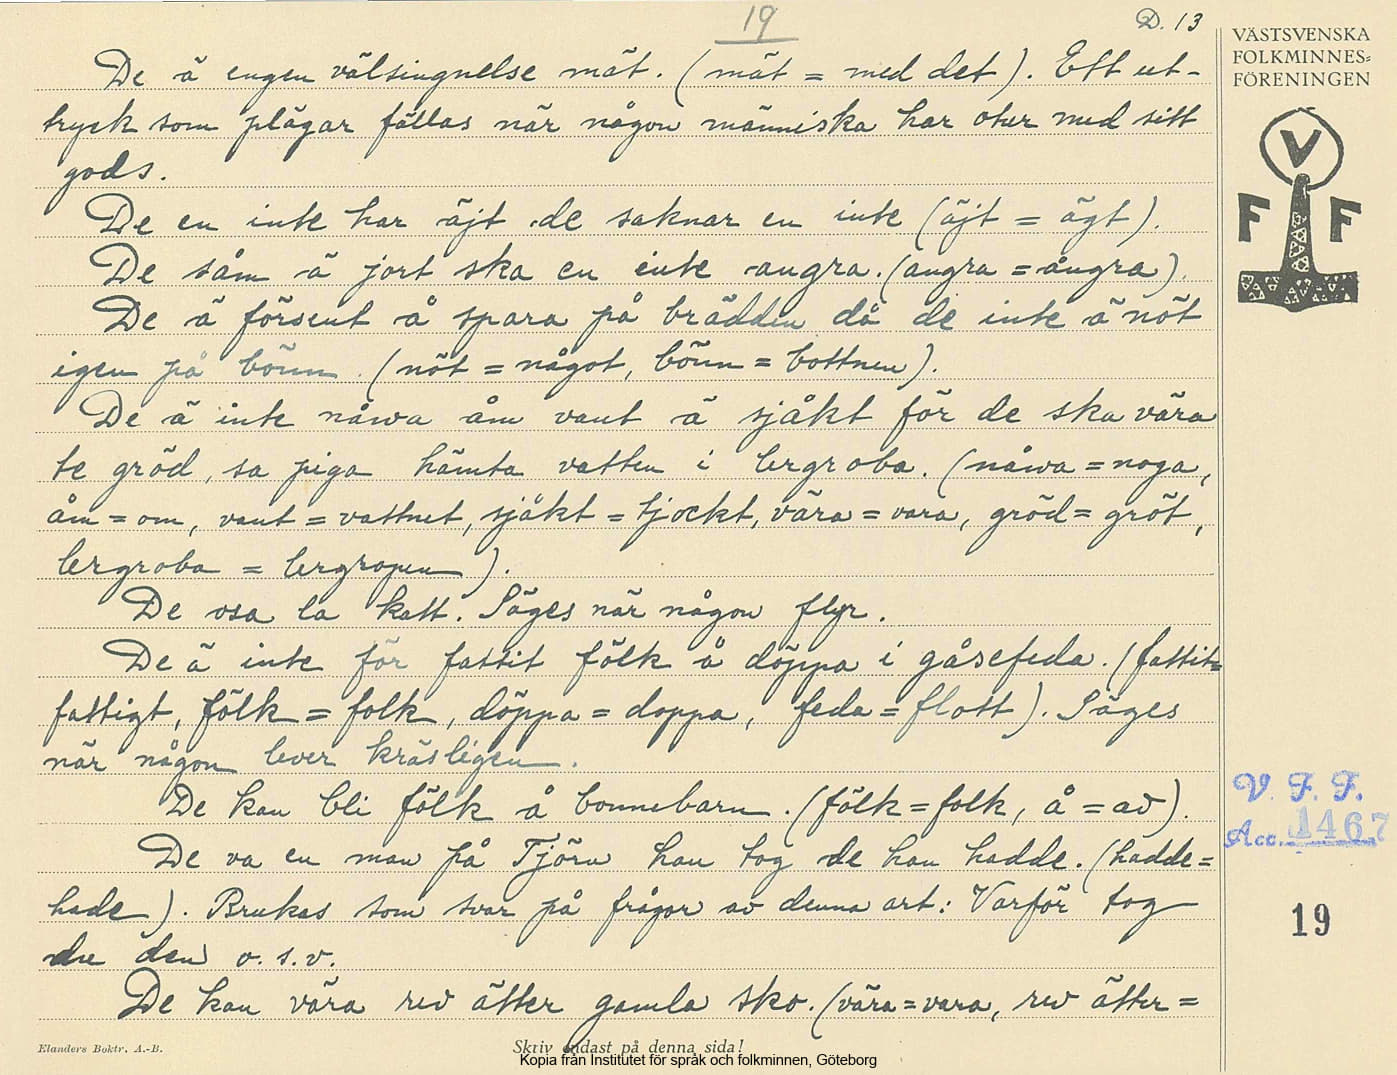 19
D. 13
VÄSTSVENSKA
FOLKMINNES=
FÖRENINGEN
V
F F
De ä engen välsingnelse mät. (mät = med det). Ett ut-
tryck som plägar fällas när någon människa har otur med sitt
gods.
De en inte har äjt de saknar en inte (äjt = ägt).
De såm ä jort ska en inte angra. (angra = ångra).
De ä försent å spara på brädden då de inte ä nöt
igen på bönn. (nöt = något, bönn = bottnen).
De ä inte nåwa åm vant ä sjåkt för de ska våra
te gröd, sa piga hämta vatten i lergroba. (nåwa = noga,
åm = om, vant = vattnet, sjåkt = tjockt, våra = vara, gröd = gröt,
lergroba = lergropen).
De osa la katt. Säges när någon flyr.
De ä inte för fattit fölk å döppa i gåsefeda. (fattit =
fattigt, fölk = folk, döppa = doppa, feda = flott). Säges
när någon lever kräsligen.
De kan bli fölk å bonnebarn. (fölk = folk, å = av).
De va en man på Tjörn han tog de han hadde. (hadde =
hade). Brukas som svar på frågor av denna art: Varför tog
du den o.s.v.
De kan våra rev ätter gamla sko. (våra = vara, rev ätter =
V. F. F.
Acc. 1467
19
Elanders Boktr. A.-B.
Skriv endast på denna sida!
Kopia från Institutet för språk och folkminnen, Göteborg